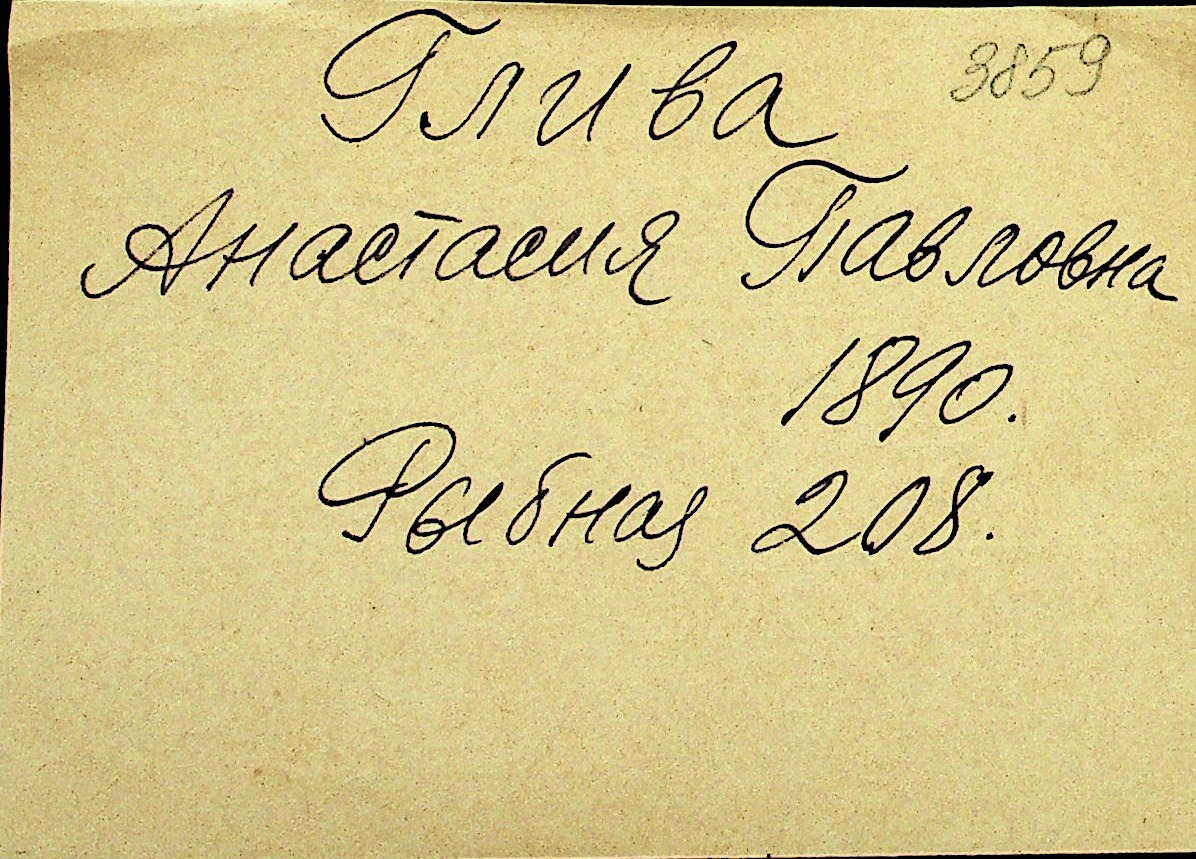 Глива 3859
Анастасия Павловна
1890.
Рыбная 208.